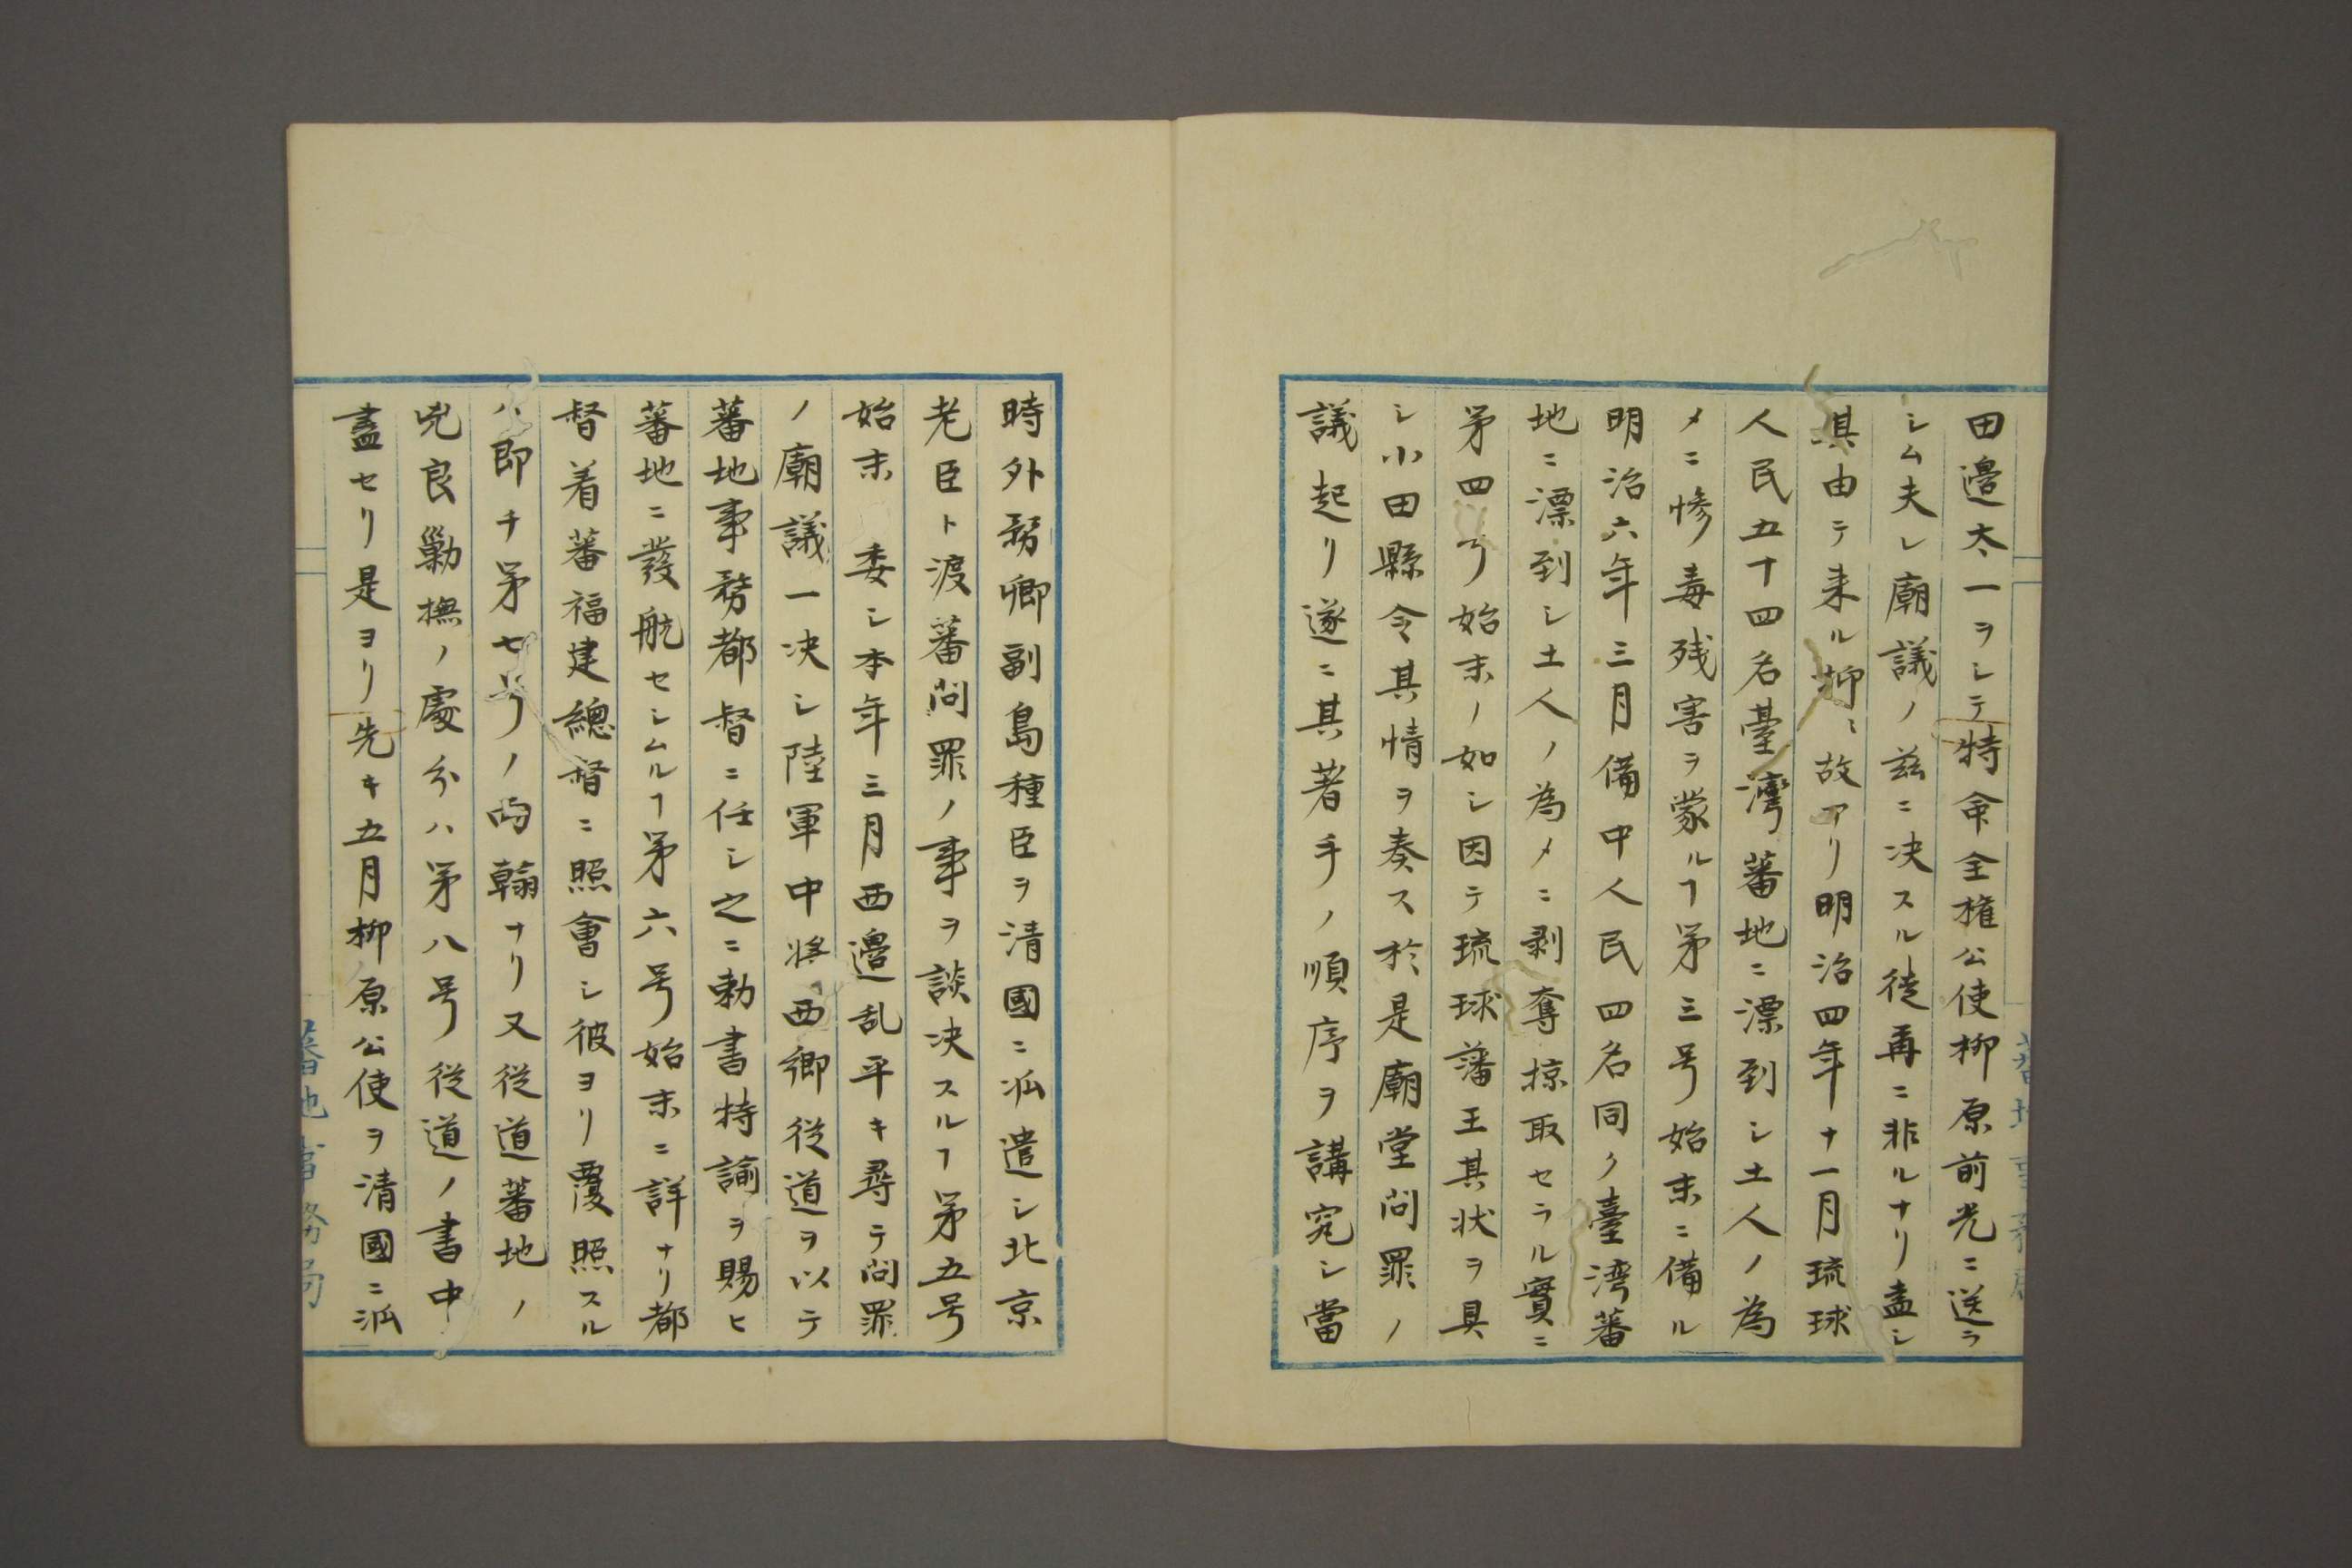 田邉太一ヲシテ特命全權公使柳原前光ニ送ラ
シム夫レ廟議ノ茲ニ决スル徒再ニ非ルナリ盖シ
其由テ来ル抑〻故アリ明治四年十一月琉球
人民五十四名臺灣蕃地ニ漂到シ土人ノ為
メニ惨毒残害ヲ蒙ルヿ第三号始末ニ備ル
明治六年三月備中人民四名同ク臺湾蕃
地ニ漂到シ土人ノ為メニ剥奪掠取セラル實ニ
第四号始末ノ如シ因テ琉球藩王其状ヲ具
シ小田縣令其情ヲ奏ス於是廟堂問罪ノ
議起リ遂ニ其著手ノ順序ヲ講究シ當
時外務卿副島種臣ヲ清國ニ派遣シ北京
老臣ト渡蕃問罪ノ事ヲ談决スルヿ第五号
始末 委シ本年三月西邉乱平キ尋テ問罪
ノ廟議一决シ陸軍中将西郷従道ヲ以テ
蕃地事務都督ニ任シ之ニ勅書特諭ヲ賜ヒ
蕃地ニ發航セシムルヿ第六号始末ニ詳ナリ都
督着蕃福建總督ニ照會シ彼ヨリ覆照スル
ハ即チ第七号ノ両翰ナリ又従道蕃地ノ
兇良勦撫ノ處分ハ第八号従道ノ書中
盡セリ是ヨリ先キ五月柳原公使ヲ清國ニ派
蕃地事務局